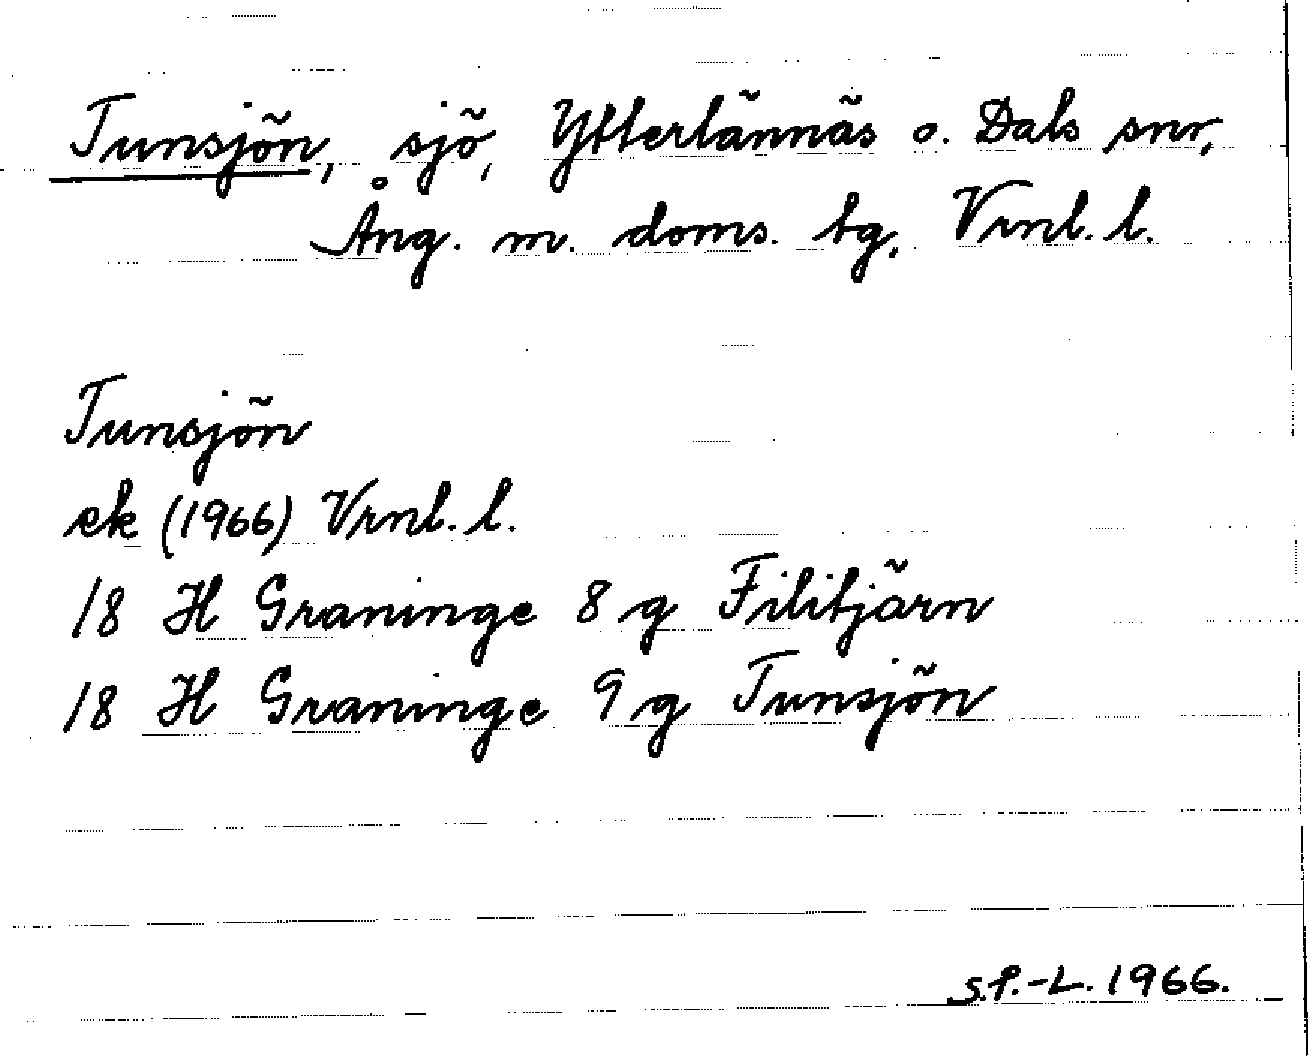 Tunsjön, sjö, Ytterlännäs o. Dals snr,
Ång. m. doms. tg, Vrnl. l.
Tunsjön
ek (1966) Vrnl. l.
18 H Graninge 8 g Filitjärn
18 H Graninge 9 g Tunsjön
S.P.-L. 1966.